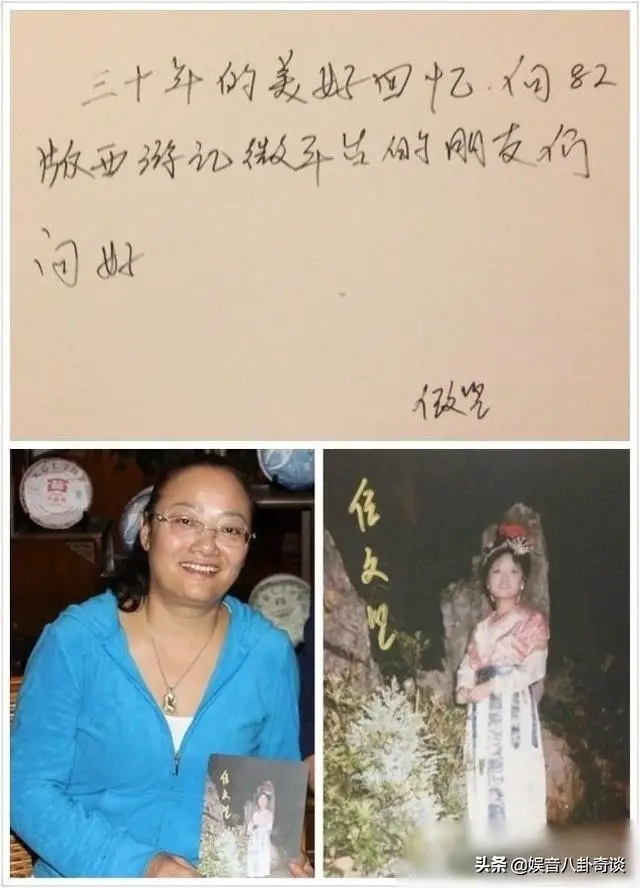 三十年的美好回忆.向82
版西游记微平台的朋友们
问好
任文
任文
任文
头条 @娱音八卦奇谈